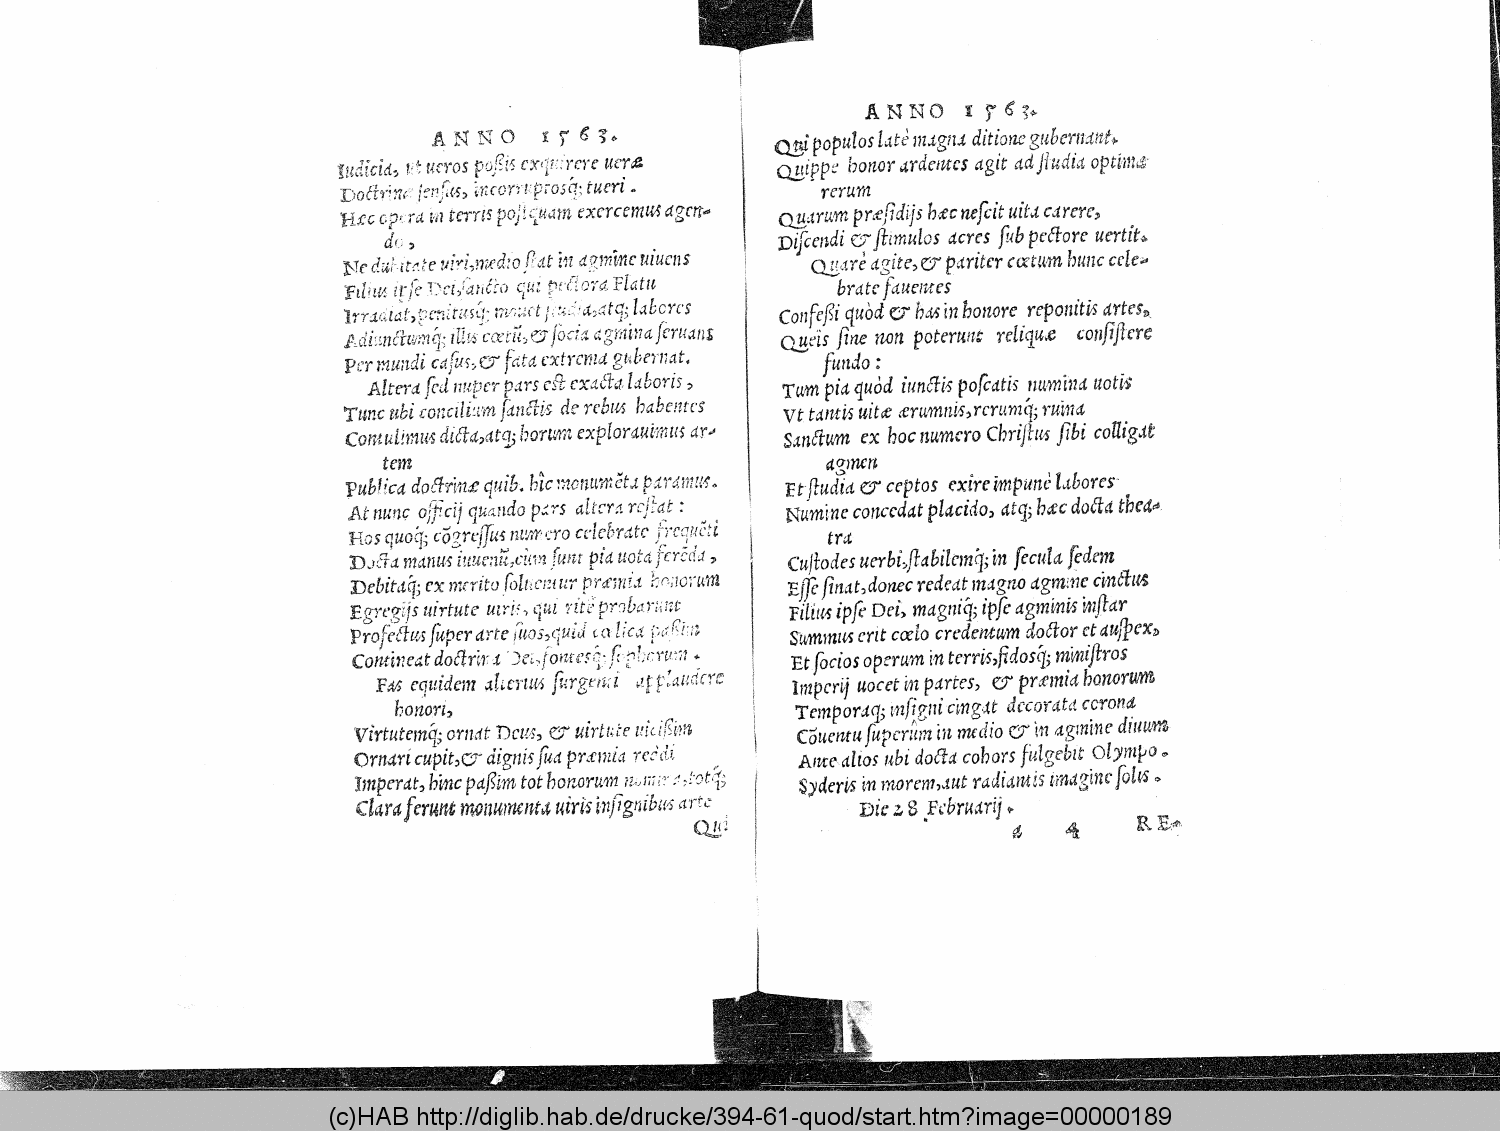 ANNO 1563.
Iudicia, ut ueros poßis exquirere ueræ
Doctrinæ sensus, incorruptosq́; tueri.
Hæc opera in terris postquam exercemus agen-
do,
Ne dubitate uiri, medio stat in agmine uiuens
Filius ipse Dei, sancto qui pectora Flatu
Irradiat, penitusq́; mouet studia, atq; labores
Adiunctumq́; illis cœtũ, & socia agmina seruans
Per mundi casus, & fata extrema gubernat.
Altera sed nuper pars est exacta laboris,
Tunc ubi concilium sanctis de rebus habentes
Contulimus dicta, atq; horum explorauimus ar-
tem
Publica doctrinæ quib. hîc monumẽta paramus.
At nunc officij quando pars altera restat:
Hos quoq́; cõgressus numero celebrate frequẽti
Docta manus iuuenũ, cùm sunt pia uota ferẽda,
Debitaq́; ex merito soluentur præmia honorum
Egregijs uirtute uiris, qui ritè probarunt
Profectus super arte suos, quid cœlica paßim
Contineat doctrina Dei, fontesq́; sophorum.
Fas equidem alterius surgenti applaudere
honori,
Virtutemq́; ornat Deus, & uirtute uicißim
Ornari cupit, & dignis sua præmia reddi
Imperat, hinc paßim tot honorum nomina, totq́;
Clara ferunt monumenta uiris insignibus arte
Qui
ANNO 1563.
Qui populos latè magna ditione gubernant.
Quippe honor ardentes agit ad studia optima
rerum
Quarum præsidijs hæc nescit uita carere,
Discendi & stimulos acres sub pectore uertit.
Quarè agite, & pariter cœtum hunc cele-
brate fauentes
Confeßi quòd & has in honore reponitis artes,
Queis sine non poterunt reliquæ consistere
fundo:
Tum pia quòd iunctis poscatis numina uotis
Vt tantis uitæ ærumnis, rerumq́; ruina
Sanctum ex hoc numero Christus sibi colligat
agmen
Et studia & ceptos exire impunè labores
Numine concedat placido, atq; hæc docta thea-
tra
Custodes uerbi, stabilemq́; in secula sedem
Esse sinat, donec redeat magno agmine cinctus
Filius ipse Dei, magniq́; ipse agminis instar
Summus erit cœlo credentum doctor et auspex,
Et socios operum in terris, fidosq́; ministros
Imperij uocet in partes, & præmia honorum
Temporaq; insigni cingat decorata corona
Cõuentu superûm in medio & in agmine diuum
Ante alios ubi docta cohors fulgebit Olympo.
Syderis in morem, aut radiantis imagine solis.
Die 28 Februarij.
a 4 RE-
(c)HAB http://diglib.hab.de/drucke/394-61-quod/start.htm?image=00000189